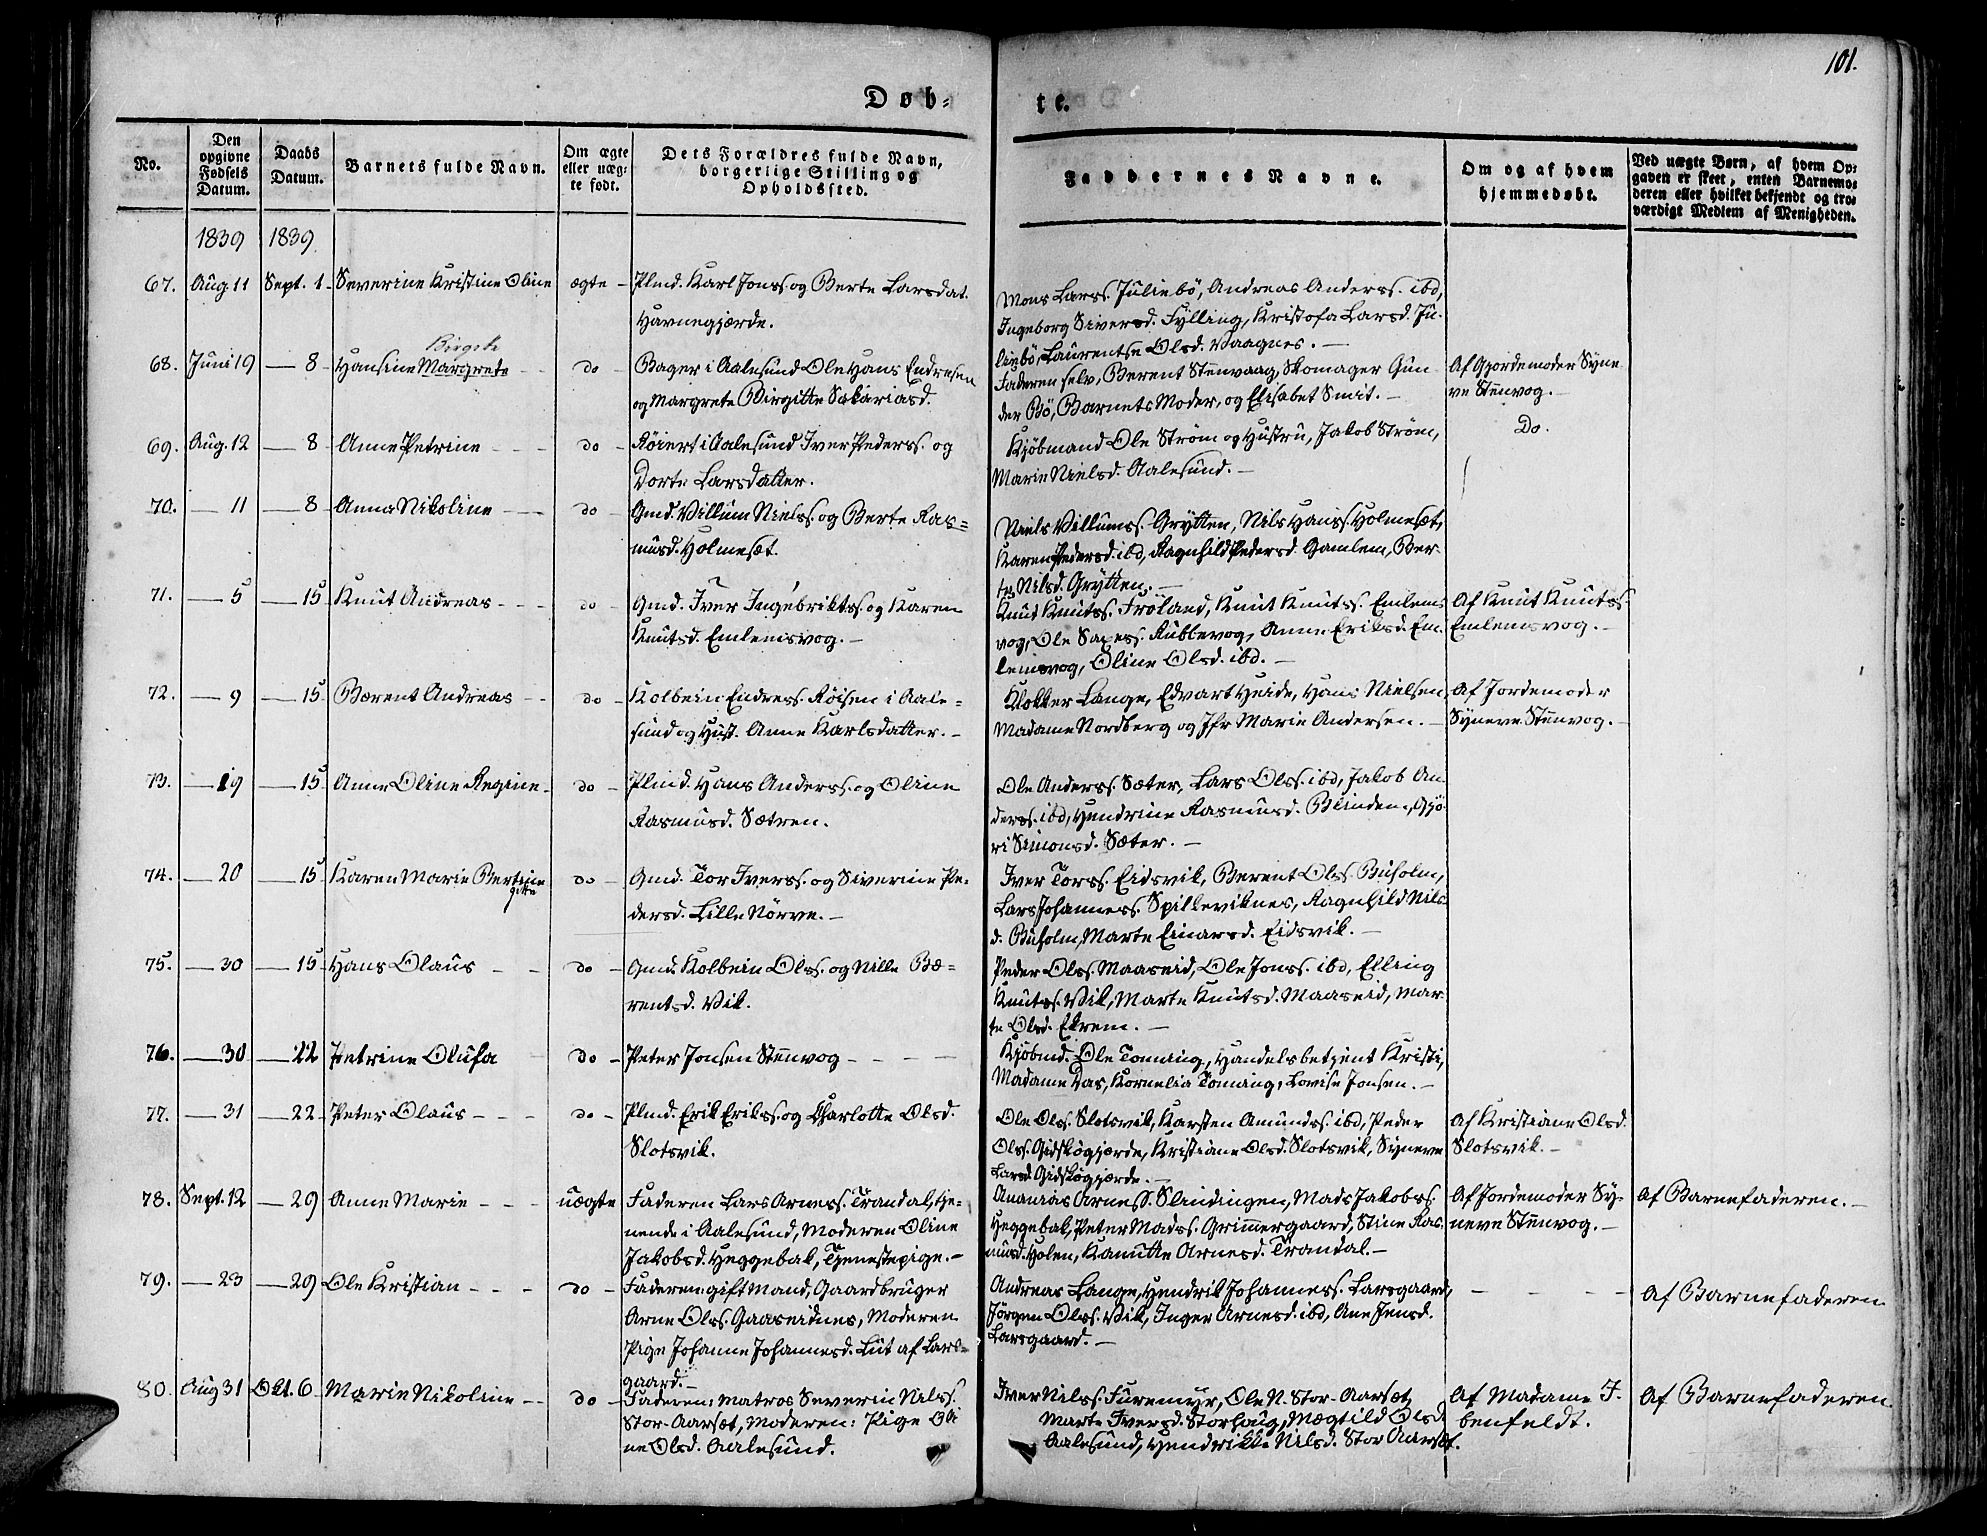 101.
Døb-
te.
No.
Den opgivne Fødsels Datum.
Daabs Datum.
Barnets fulde Navn.
Om ægte eller uægte født.
Dets Forældres fulde Navn, borgerlige Stilling og Opholdssted.
Faddernes Navne.
Om og af hvem hjemmedøbt.
Ved uægte Børn, af hvem Opgaven er skeet, enten Barnemoderen eller hvilket bekjendt og troværdigt Medlem af Menigheden.
1839 1839
67. Aug. 11 Sept. 1 Severine Kristine Oline ægte Plmd. Karl Jonss. og Berte Larsdat.
Havnegjærde.
Mons Larss. Juliebö, Andreas Anderss. ibd,
Ingeborg Siversd. Fylling, Kristofa Larsd. Ju-
liebö, Laurentse Olsd. Vaagnes. —
68. Juni 19 — 8 Hansine Margrete do Bager i Aalesund Ole Hans Endresen
Birgete
og Margrete Birgitte Sakariasd.
Faderen selv, Berent Stenvaag, Skomager Gun-
der Bö, Barnets Moder, og Elisabet Smit. —
Af Gjordemoder Syne-
ve Stenvog. —
69. Aug. 12 — 8 Anne Petrine do Røiert i Aalesund Iver Pederss. og
Dorte Larsdatter.
Kjöbmand Ole Ström og Hustru, Jakob Ström,
Marie Nielsd. Aalesund. —
Do.
70. — 11 — 8 Anna Nikoline do Gmd. Villum Nielss. og Berte Ras=
musd. Holmesæt.
Niels Villumss. Grytten, Nils Hanss. Holmesæt,
Karen Pedersd. ibd, Ragnhild Pedersd. Gamlem, Ber-
te Nilsd. Grytten. —
71. — 5 — 15 Knut Andreas do Gmd. Iver Ingebriktss. og Karen
Knutsd. Emlemsvog. —
Knud Knutss. Fröland, Knut Knutss. Emlems
vog, Ole Saxess. Rubbevog, Anne Eriksd. Em-
lemsvog, Oline Olsd. ibd. —
Af Knut Knutss.
Emlemsvog. —
72. — 9 — 15 Bærent Andreas do Kolbein Endress. Röisen i Aale=
sund og Hust. Anne Karlsdatter. —
Klokker Lange, Edvart Heide, Hans Nielsen,
Madame Nordberg og Jfr Marie Andersen. —
Af Jordemoder
Syneve Stenvog. —
73. — 19 — 15 Anne Oline Regine do Plmd. Hans Anderss. og Oline
Rasmusd. Sætren.
Ole Anderss. Sæter, Lars Olss. ibd, Jakob An-
derss. ibd, Hendrine Rasmusd. Blinden., Gjö-
ri Simonsd. Sæter. —
74. — 20 — 15 Karen Marie Bertine do Gmd. Tor Iverss. og Siverine Pe-
gitte
dersd. Lille Nörve. —
Iver Torss. Eidsvik, Berent Olss. Buholm,
Lars Johanness. Spilleviknes, Ragnhild Nils-
d. Buholm, Marte Einarsd. Eidsvik. —
75. — 30 — 15 Hans Olaus do Gmd. Kolbein Olss. og Nille Bæ=
rentsd. Vik.
Peder Olss. Maaseid, Ole Jonss. ibd, Elling
Knutss. Vik, Marte Knutsd. Maaseid, Mar-
te Olsd. Ekrem. —
76. — 30 — 22 Petrine Olufa do Peter Jonsen Stenvog —
Kjöbmd. Ole Tonning, Handelsbetjent Kristi,
Madame Das, Kornelia Tonning, Lovise Jonsen. —
77. — 31 — 22 Peter Olaus do Plmd. Erik Erikss. og Charlotte Olsd.
Slotsvik.
Ole Olss. Slotsvik, Karsten Amundss. ibd, Peder
Olss. Gidskögjærde, Kristiane Olsd. Slotsvik, Syneve
Larsd. Gidskögjærde. —
Af Kristiane Olsd.
Slotsvik. —
78. Sept. 12 — 29 Anne Marie uægte Faderen Lars Arness. Trandal, tje-
nende i Aalesund, Moderen Oline
Jakobsd. Heggebak, Tjenestepige. —
Ananias Arness. Slindingen, Mads Jakobss.
Heggebak, Peter Madss. Grimmergaard, Stine Ras-
musd. Holen, Kanutte Arnesd. Trandal. —
Af Jordemoder Sy-
neve Stenvog. —
Af Barnefaderen. —
79. — 23 — 29 Ole Kristian do Faderen: gift Mand, Gaardbruger
Arne Olss. Gaaseidnes, Moderen
Pige Johanne Johannesd. Lut af Lars-
gaard. —
Andreas Lange, Hendrik Johanness. Larsgaard,
Jörgen Olss. Vik, Inger Arnesd. ibd, Ane Jensd.
Larsgaard. —
Af Barnefaderen.
80. Aug 31 Okt. 6 Marie Nikoline do Faderen: Matros Severin Nilss.
Stor-Aarsæt, Moderen: Pige Oli
ne Olsd. Aalesund.
Iver Nilss. Furemyr, Ole N. Stor-Aarsæt,
Marte Iversd. Storhaug, Mægtild Olsd.
Aalesund, Hendrikke Nilsd. Stor Aarsæt.
Af Madame I-
benfeldt.
Af Barnefaderen.